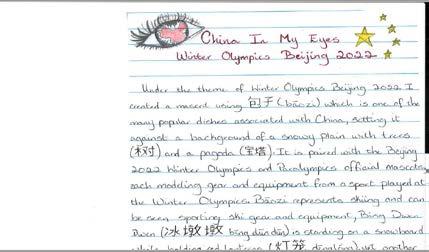 China In My Eyes
Winter Olympics Beijing 2022
Under the theme of Winter Olympics Beijing 2022 I
created a mascot using 包子 (bāozi) which is one of the
many popular dishes associated with China, setting it
against a background of a snowy plain with trees
(树) and a pagoda (宝塔). It is paired with the Beijing
2022 Winter Olympics and Paralympics official mascots,
each modding gear and equipment from a sport played at
the Winter Olympics. Bāozi represents skiing and can
be seen sporting ski gear and equipment, Bing Dwen
Dwen (冰墩墩 bīng dūn dūn) is standing on a snowboard